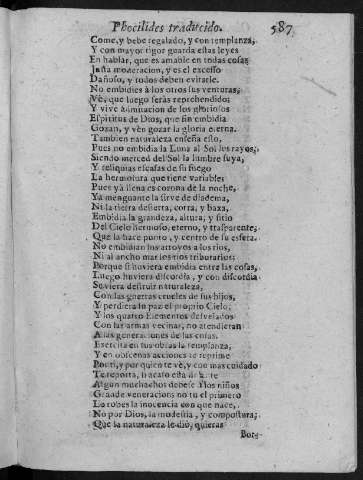 Phocilides traducido. 587
Come, y bebe regalado, y con templanza,
Y con mayor rigor guarda estas leyes
En hablar, que es amable en todas cosas
Justa moderacion, y es el excesso
Dañoso, y todos deben evitarle.
No embidies à los otros sus venturas,
Vè, que luego seràs reprehendido;
Y vive à imitacion de los gloriosos
Espiritus de Dios, que sin embidia
Gozan, y vèn gozar la gloria eterna.
Tambien naturaleza enseña esto,
Pues no embidia la Luna al Sol los rayos,
Siendo merced del Sol la lumbre suya,
Y reliquias escasas de su fuego
La hermosura que tiene variable:
Pues yà llena es corona de la noche,
Ya menguante la sirve de diadema,
Ni la tierra desierta, corta, y baxa,
Embidia la grandeza, altura, y sitio
Del Cielo hermoso, eterno, y trasparente,
Que la hace punto, y centro de su esfera.
No embidian los arroyos à los rios,
Ni al ancho mar los rios tributarios:
Porque si huviera embidia entre las cosas,
Luego huviera discordia, y con discordia
Se viera destruir naturaleza,
Con las guerras crueles de sus hijos,
Y perdiera la paz el proprio Cielo,
Y los quatro Elementos desvelados
Con las armas vecinas, no atendieran
A las generaciones de las cosas.
Exercita en tus obras la templanza,
Y en obscenas acciones te reprime
Por ti, y por quien te vè, y con mas cuidado
Te reporta, si acaso està delante
Algun muchacho: debese à los niños
Grande veneracion: no tu el primero
Le robes la inocencia con que nace,
No por Dios, la modestia, y compostura,
Que la naturaleza le diò, quieras
Bor-